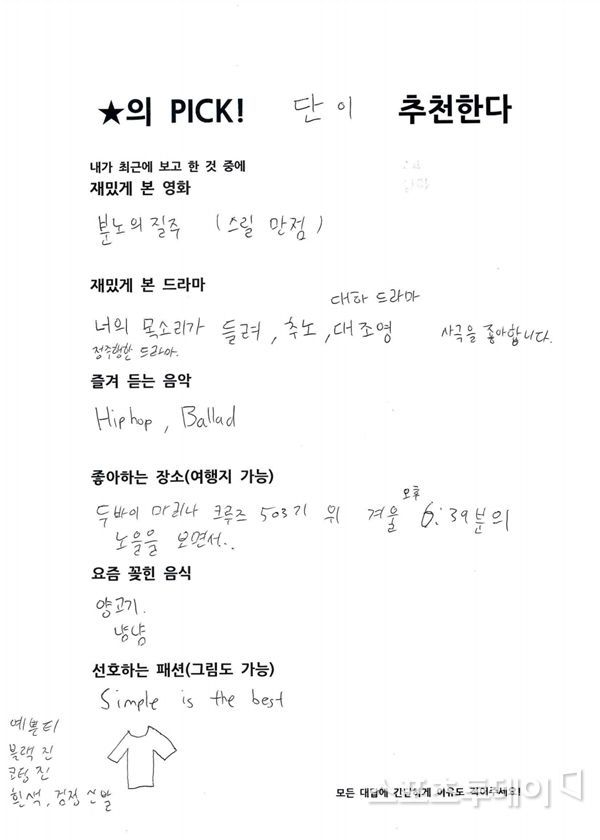 ★의 PICK! 단이 추천한다
내가 최근에 보고 한 것 중에
재밌게 본 영화
분노의 질주 (스릴 만점)
재밌게 본 드라마
대하 드라마
너의 목소리가 들려, 추노, 대조영 사극을 좋아합니다.
정주행한 드라마.
즐겨 듣는 음악
Hiphop, Ballad
좋아하는 장소(여행지 가능)
오후
두바이 마리나 크루즈 503기 위 겨울 6:39분의
노을을 보면서..
요즘 꽂힌 음식
양고기.
냠냠
선호하는 패션(그림도 가능)
Simple is the best
예쁜티
블랙 진
코팅 진
흰색, 검정 신발
모든 대답에 간단하게 이유도 적어주세요!
스포츠투데이